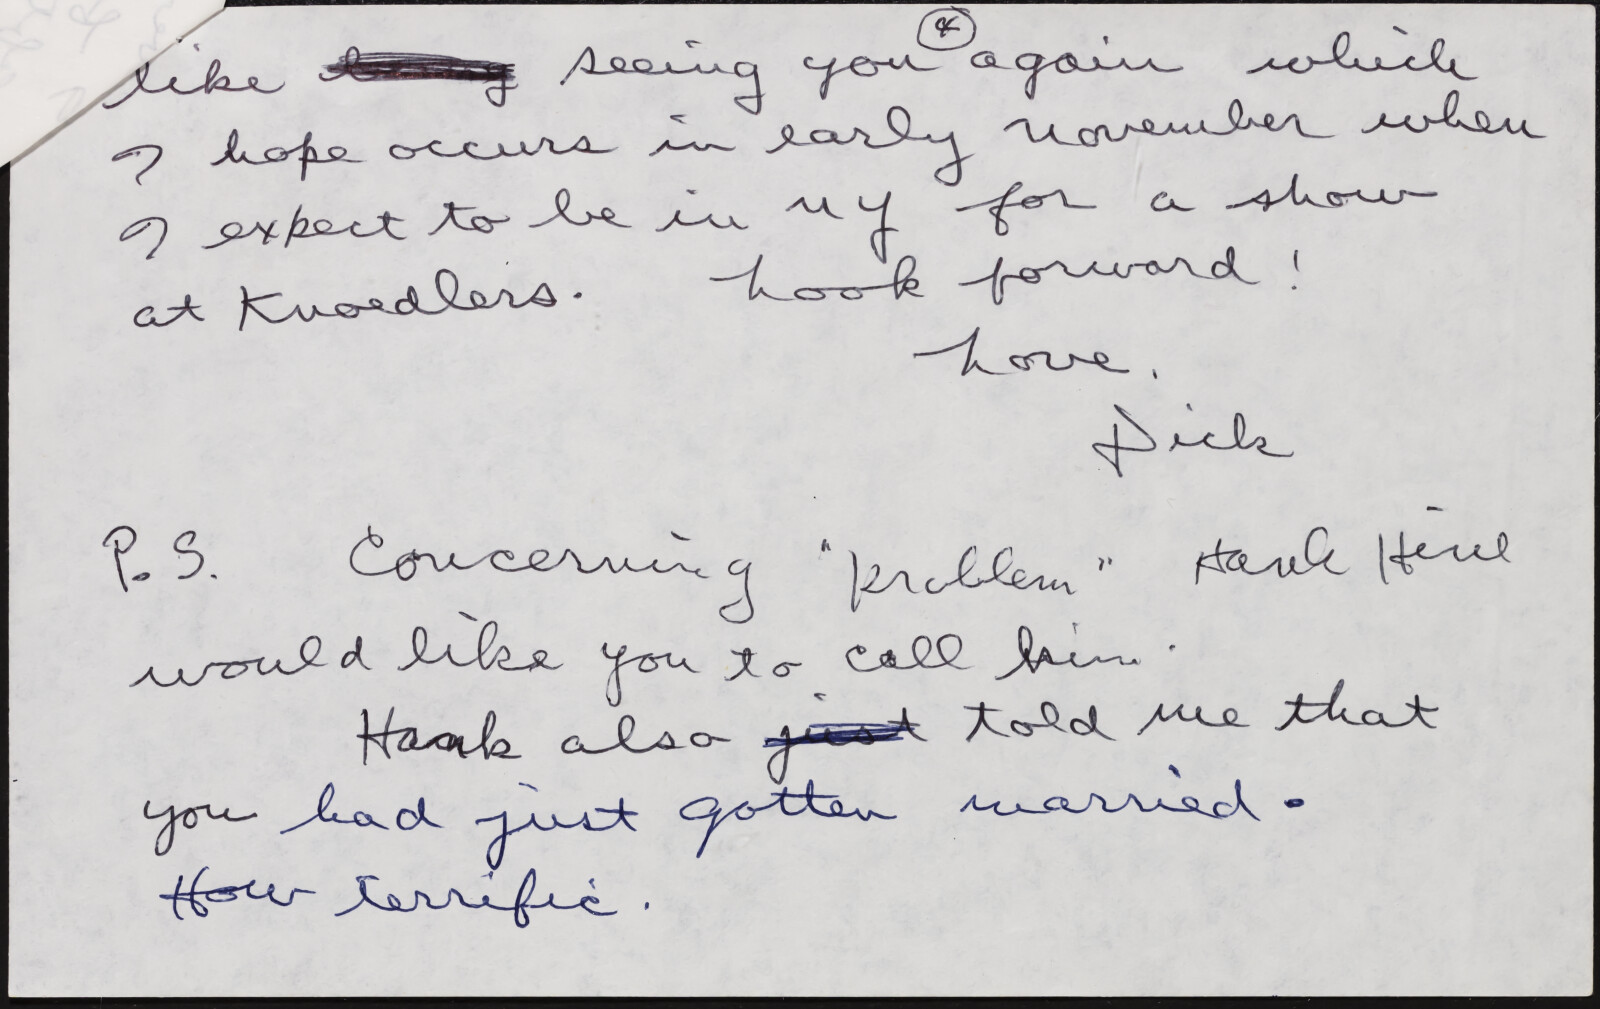 4
like seeing you again which
I hope occurs in early November when
I expect to be in NY for a show
at Knoedlers. Look forward!
Love,
Dick
P.S. Concerning "problem" Hank Hine
would like you to call him.
Hank also just told me that
you had just gotten married.
How terrific.